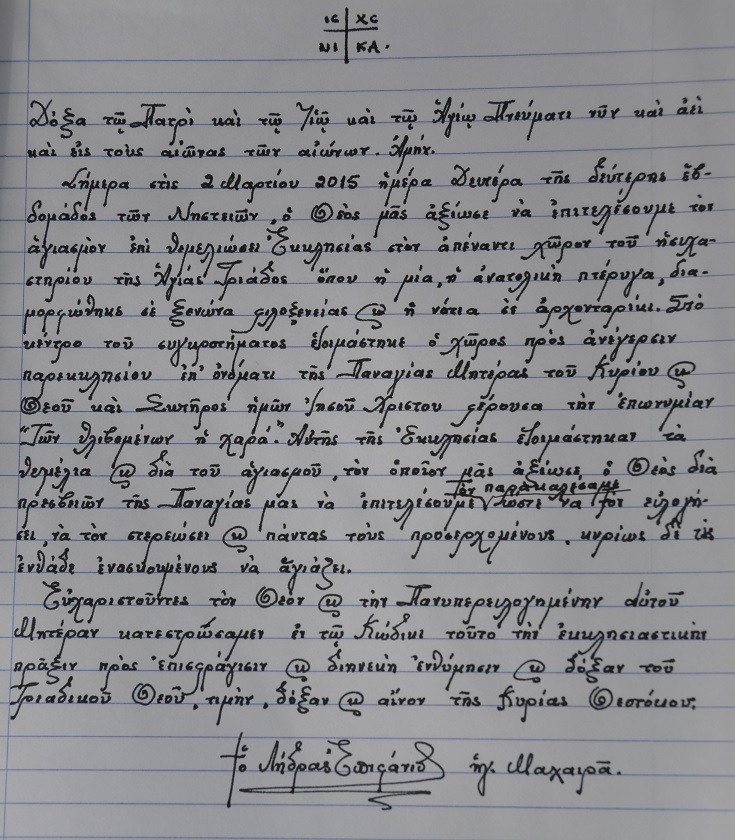 ΙC ΧC
ΝΙ ΚΑ.
Δόξα τῷ Πατρὶ καὶ τῷ Υἱῷ καὶ τῷ Ἁγίῳ Πνεύματι νῦν καὶ ἀεὶ
καὶ εἰς τοὺς αἰῶνας τῶν αἰώνων. Ἀμήν.
Σήμερα στὶς 2 Μαρτίου 2015 ἡμέρα Δευτέρα τῆς δεύτερης ἑβ-
δομάδος τῶν Νηστειῶν, ὁ Θεὸς μᾶς ἀξίωσε νὰ ἐπιτελέσουμε τὸν
ἁγιασμὸν ἐπὶ θεμελιώσει Ἐκκλησίας στὸν ἀπέναντι χῶρον τοῦ ἡσυχα-
στηρίου τῆς Ἁγίας Τριάδος ὅπου ἡ μία, ἡ ἀνατολικὴ πτέρυγα, δια-
μορφώθηκε σὲ ξενώνα φιλοξενείας ϗ ἡ νότια σὲ ἀρχονταρίκι. Στὸ
κέντρο τοῦ συγκροτήματος ἑτοιμάστηκε ὁ χῶρος πρὸς ἀνέγερσιν
παρεκκλησίου ἐπ' ὀνόματι τῆς Παναγίας Μητέρας τοῦ Κυρίου ϗ
Θεοῦ καὶ Σωτῆρος ἡμῶν Ἰησοῦ Χριστοῦ φέρουσα τὴν ἐπωνυμίαν
"Τῶν θλιβομένων ἡ χαρά." Αὐτῆς τῆς Ἐκκλησίας ἑτοιμάστηκαν τὰ
θεμέλια ϗ διὰ τοῦ ἁγιασμοῦ, τὸν ὁποῖον μᾶς ἀξίωσε ὁ Θεὸς διὰ
πρεσβειῶν τῆς Παναγίας μας νὰ ἐπιτελέσουμε τὸν παρακαλέσαμε ὥστε νὰ τὸν εὐλογή-
σει, νὰ τὸν στερεώσει ϗ πάντας τοὺς προσερχομένους, κυρίως δὲ τὶς
ἐνθάδε ἐνασκουμένους νὰ ἁγιάζει.
Εὐχαριστοῦντες τὸν Θεὸν ϗ τὴν Πανυπερευλογημένην αὐτοῦ
Μητέραν κατεστρώσαμεν ἐν τῷ Κώδικι τοῦτο τὴν ἐκκλησιαστικὴν
πρᾶξιν πρὸς ἐπισφράγισιν ϗ διηνεκῆ ἐνθύμησιν ϗ δόξαν τοῦ
Τριαδικοῦ Θεοῦ, τιμὴν, δόξαν ϗ αἶνον τῆς Κυρίας Θεοτόκου.
† ὁ Λήδρας Ἐπιφάνιος ἡγ. Μαχαιρᾶ.